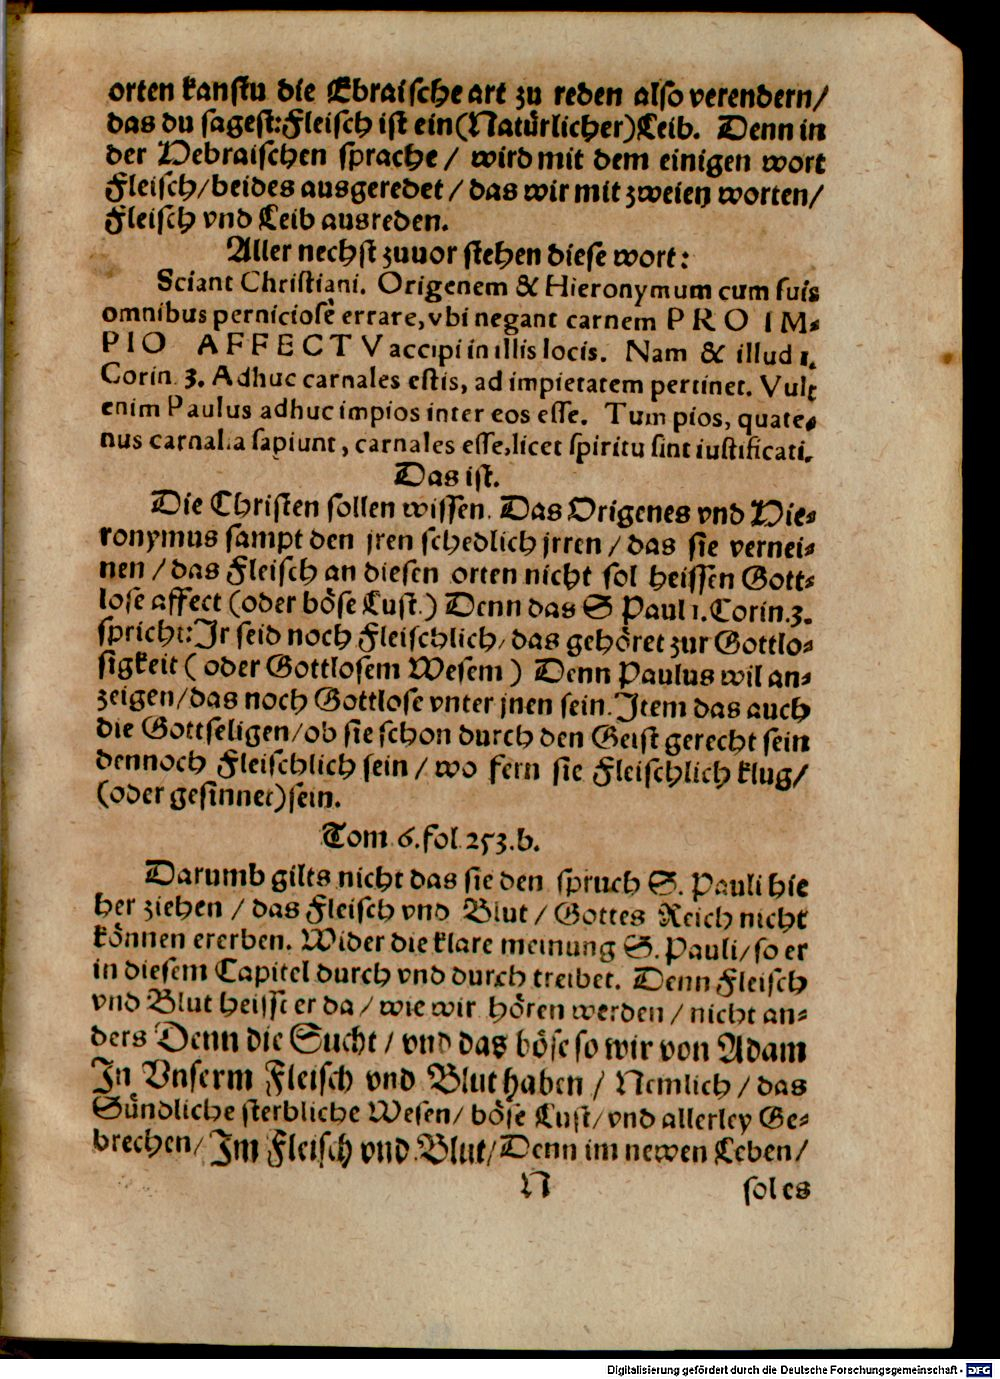 orten kanstu die Ebraische art zu reden also verendern/
das du sagest: Fleisch ist ein (Natürlicher) Leib. Denn in
der Hebraischen sprache / wird mit dem einigen wort
Fleisch/beides ausgeredet / das wir mit zweien worten/
Fleisch vnd Leib ausreden.
Aller nechst zuuor stehen diese wort:
Sciant Christiani. Origenem & Hieronymum cum suis
omnibus perniciosè errare, vbi negant carnem PRO IM-
PIO AFFECTV accipi in illis locis. Nam & illud 1.
Corin. 3. Adhuc carnales estis, ad impietatem pertinet. Vult
enim Paulus adhuc impios inter eos esse. Tum pios, quate-
nus carnalia sapiunt, carnales esse, licet spiritu sint iustificati.
Das ist.
Die Christen sollen wissen. Das Origenes vnd Hie-
ronymus sampt den jren schedlich jrren / das sie vernei-
nen / das Fleisch an diesen orten nicht sol heissen Gott-
lose affect (oder böse Lust.) Denn das S Paul 1. Corin. 3.
spricht: Jr seid noch Fleischlich/ das gehöret zur Gottlo-
sigkeit ( oder Gottlosem Wesem ) Denn Paulus wil an-
zeigen/das noch Gottlose vnter jnen sein. Item das auch
die Gottseligen/ob sie schon durch den Geist gerecht sein
dennoch Fleischlich sein / wo fern sie Fleischlich klug/
(oder gesinnet) sein.
Tom 6. fol 253. b.
Darumb gilts nicht das sie den spruch S. Pauli hie
her ziehen / das Fleisch vnd Blut / Gottes Reich nicht
können ererben. Wider die klare meinung S. Pauli/ so er
in diesem Capitel durch vnd durch treibet. Denn Fleisch
vnd Blut heisst er da / wie wir hören werden / nicht an-
ders Denn die Sucht / vnd das böse so wir von Adam
In Vnserm Fleisch vnd Blut haben / Nemlich / das
Sündliche sterbliche Wesen/ böse Lust/ vnd allerley Ge-
brechen/ Im Fleisch vnd Blut/ Denn im newen Leben/
N sol es
Digitalisierung gefördert durch die Deutsche Forschungsgemeinschaft - DFG